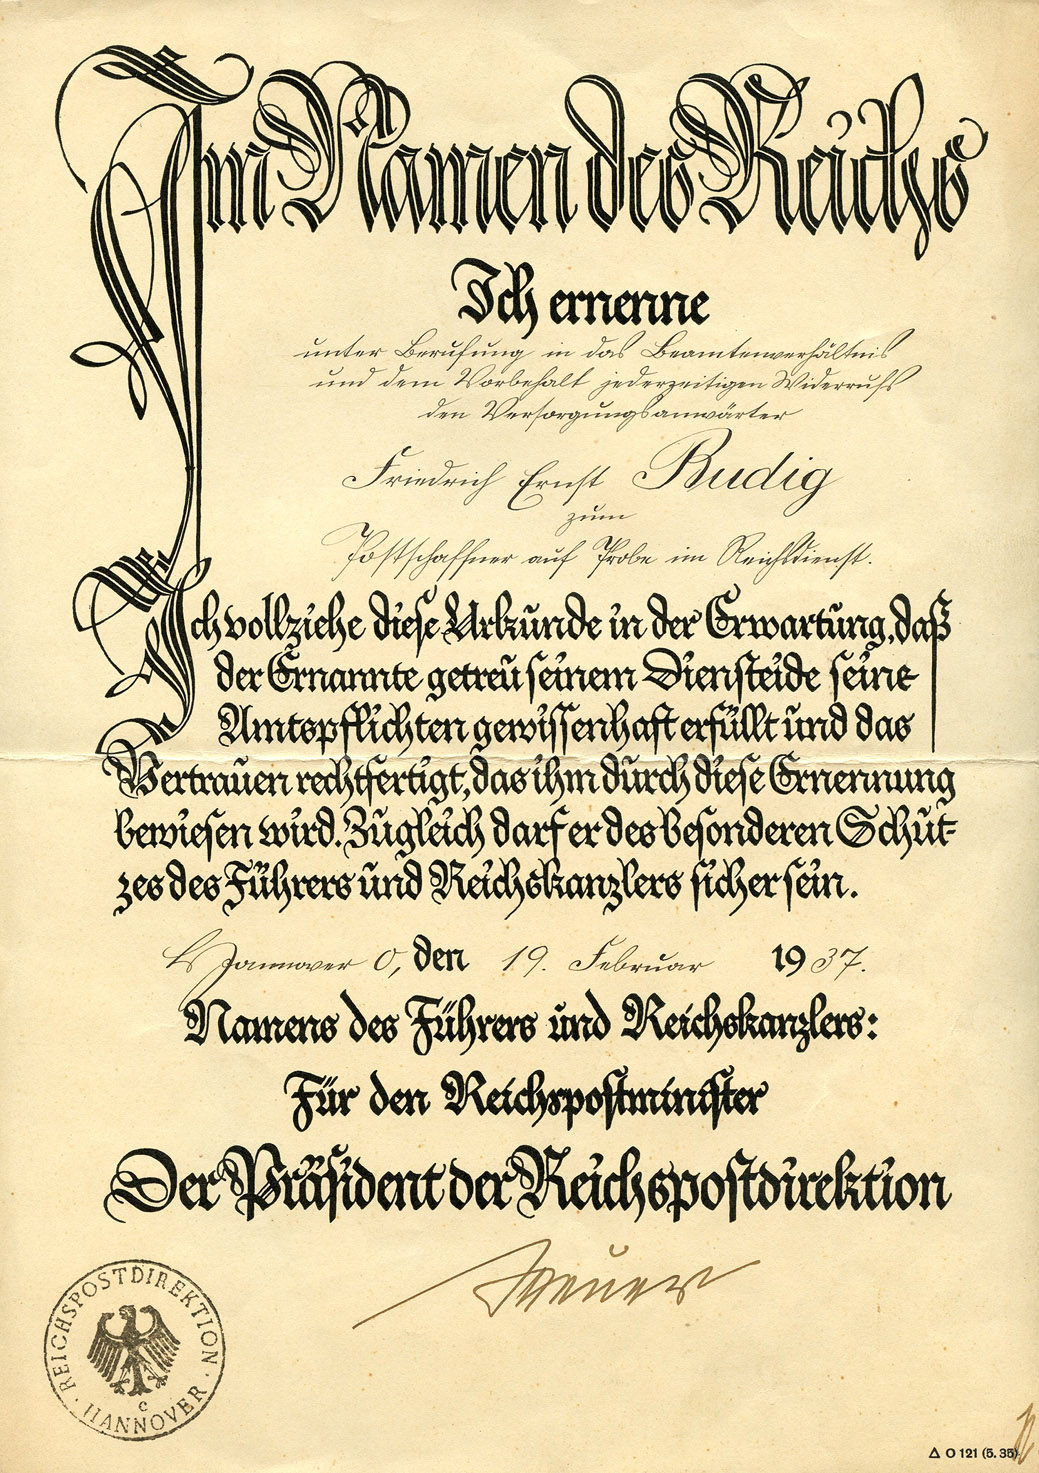 Im Namen des Reichs
Ich ernenne
unter Berufung in das Beamtenverhältnis
und dem Vorbehalt jederzeitigen Widerrufs
den Versorgungsanwärter
Friedrich Ernst Rudig
zum
Postschaffner auf Probe im Reichsdienst.
Ich vollziehe diese Urkunde in der Erwartung, daß
der Ernannte getreu seinem Diensteide seine
Amtspflichten gewissenhaft erfüllt und das
Vertrauen rechtfertigt, das ihm durch diese Ernennung
bewiesen wird. Zugleich darf er des besonderen Schut-
zes des Führers und Reichskanzlers sicher sein.
Hannover O, den 19. Februar 1937.
Namens des Führers und Reichskanzlers:
Für den Reichspostminister
Der Präsident der Reichspostdirektion
REICHSPOSTDIREKTION
HANNOVER
c
Δ O 121 (5. 35)